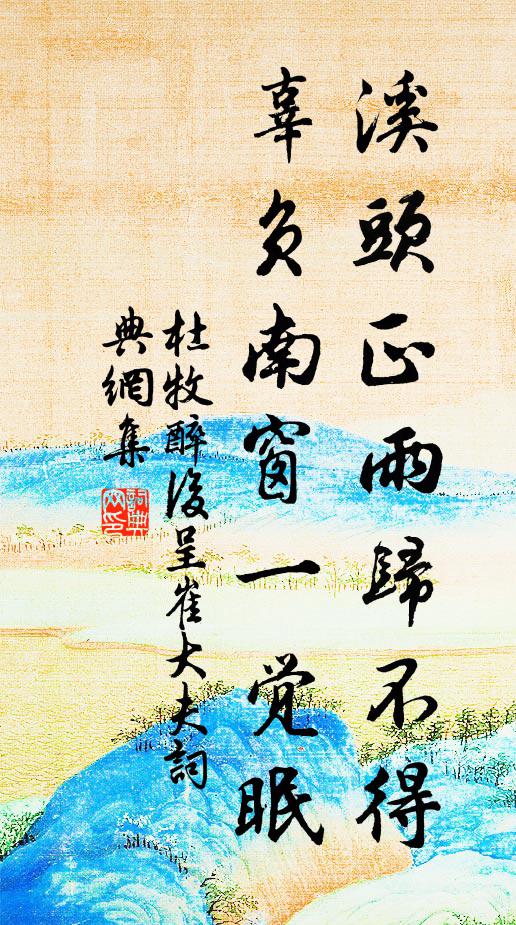 溪頭正雨歸不得
辜負南窗一覺眠
杜牧醉後呈崔大夫詞
典網集
詞典
网印